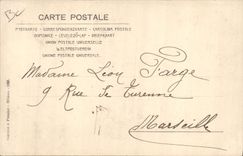 CARTE POSTALE
POSTKARTE - CORRESPONDENZKARTE - CARTOLINA POSTALE
DOPISNICE - LEVELEZŐ-LAP - BREFKORT
UNION POSTALE UNIVERSELLE
WELTPOSTVEREIN
UNIONE POSTALE UNIVERSALE
Madame Léon Farge
9 Rue de Turenne
Marseille